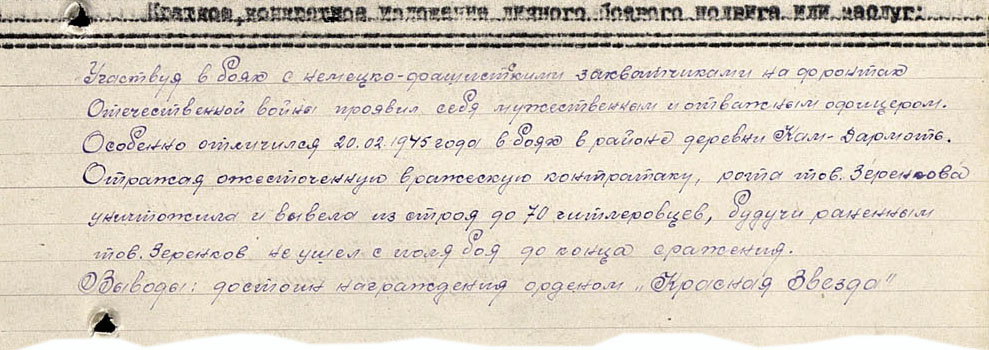 Краткое, конкретное изложение личного боевого подвига или заслуг:
Участвуя в боях с немецко-фашисткими захватчиками на фронтах
Отечественной войны проявил себя мужественным и отважным офицером.
Особенно отличился 20.02.1945 года в боях в районе деревни Кам-Дармоть.
Отражая ожесточенную вражескую контратаку, рота тов. Зеренкова
уничтожила и вывела из строя до 70 гитлеровцев, будучи раненным
тов. Зеренков не ушел с поля боя до конца сражения.
Выводы: достоин награждения орденом „Красная Звезда"